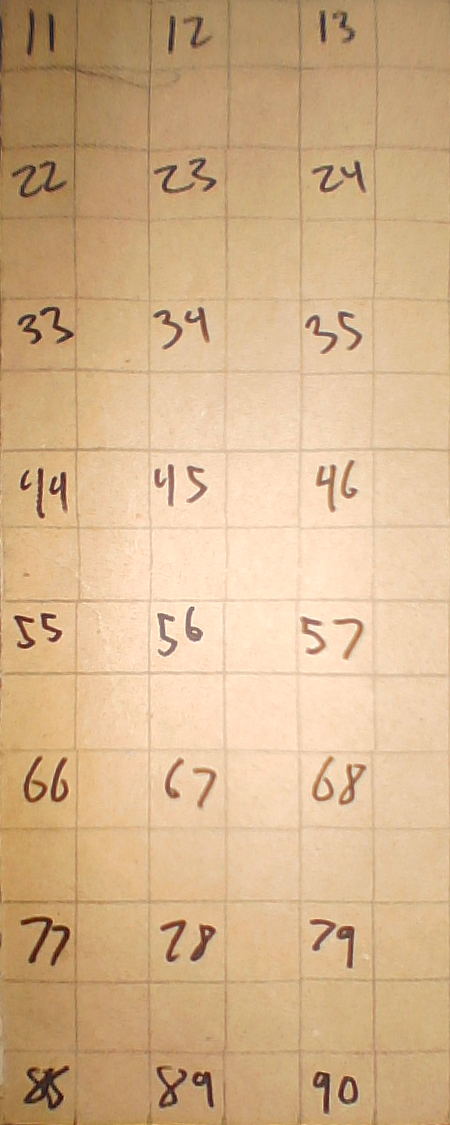 11 12 13
22 23 24
33 34 35
44 45 46
55 56 57
66 67 68
77 78 79
88 89 90